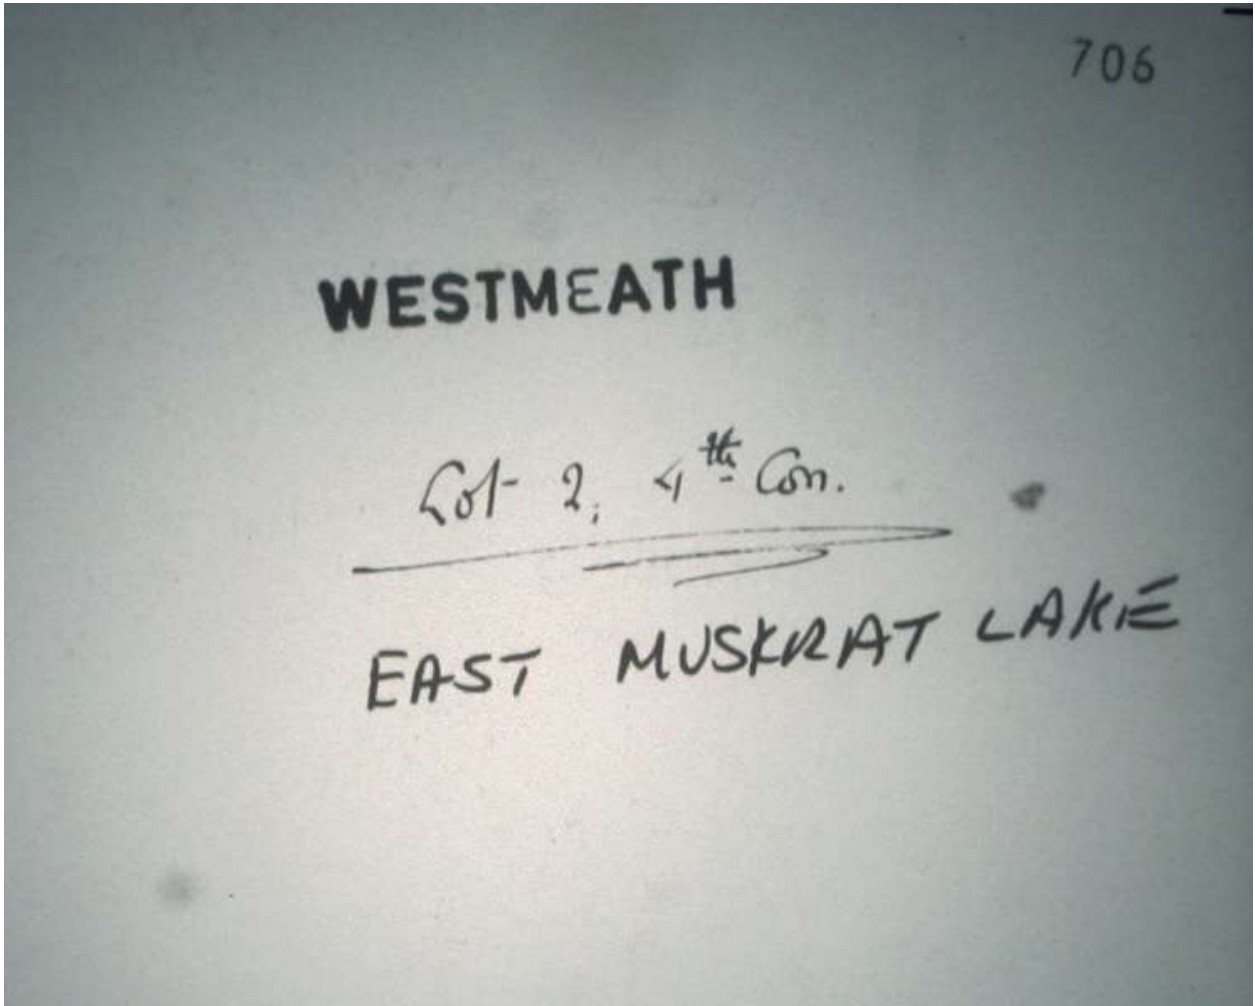 706
WESTMEATH
Lot 2, 4th Con.
EAST MUSKRAT LAKE